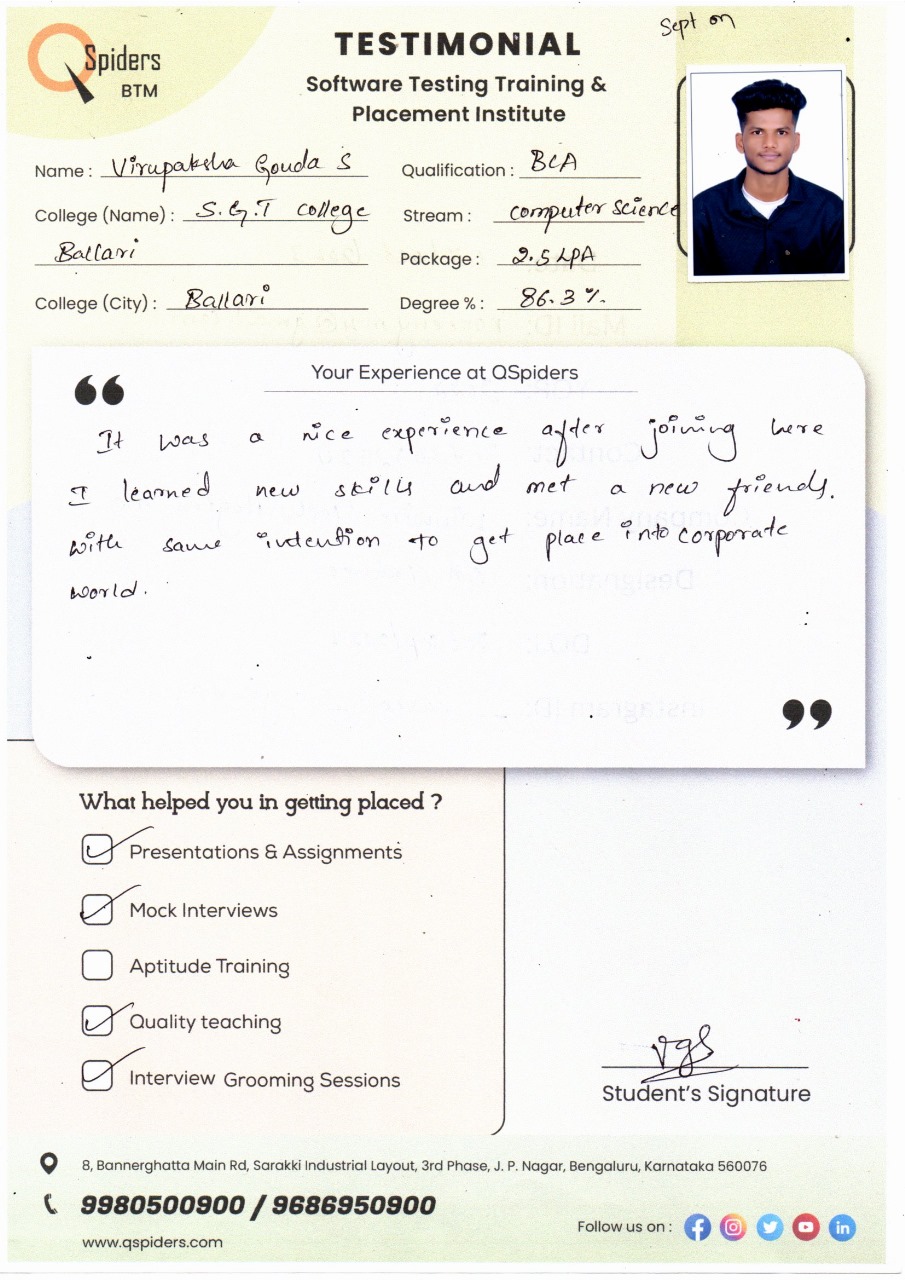 Sept on
QSpiders
BTM
TESTIMONIAL
Software Testing Training &
Placement Institute
Name : Virupaksha Gouda S
Qualification : BCA
College (Name) : S.G.T college
Ballari
Stream : computer science
Package : 2.5 LPA
College (City) : Ballari
Degree % : 86.3 %.
Your Experience at QSpiders
It was a nice experience after joining here
I learned new skills and met a new friends.
with same intention to get place into corporate
world.
What helped you in getting placed ?
Presentations & Assignments
Mock Interviews
Aptitude Training
Quality teaching
Interview Grooming Sessions
VGS
Student's Signature
8, Bannerghatta Main Rd, Sarakki Industrial Layout, 3rd Phase, J. P. Nagar, Bengaluru, Karnataka 560076
9980500900 / 9686950900
www.qspiders.com
Follow us on :